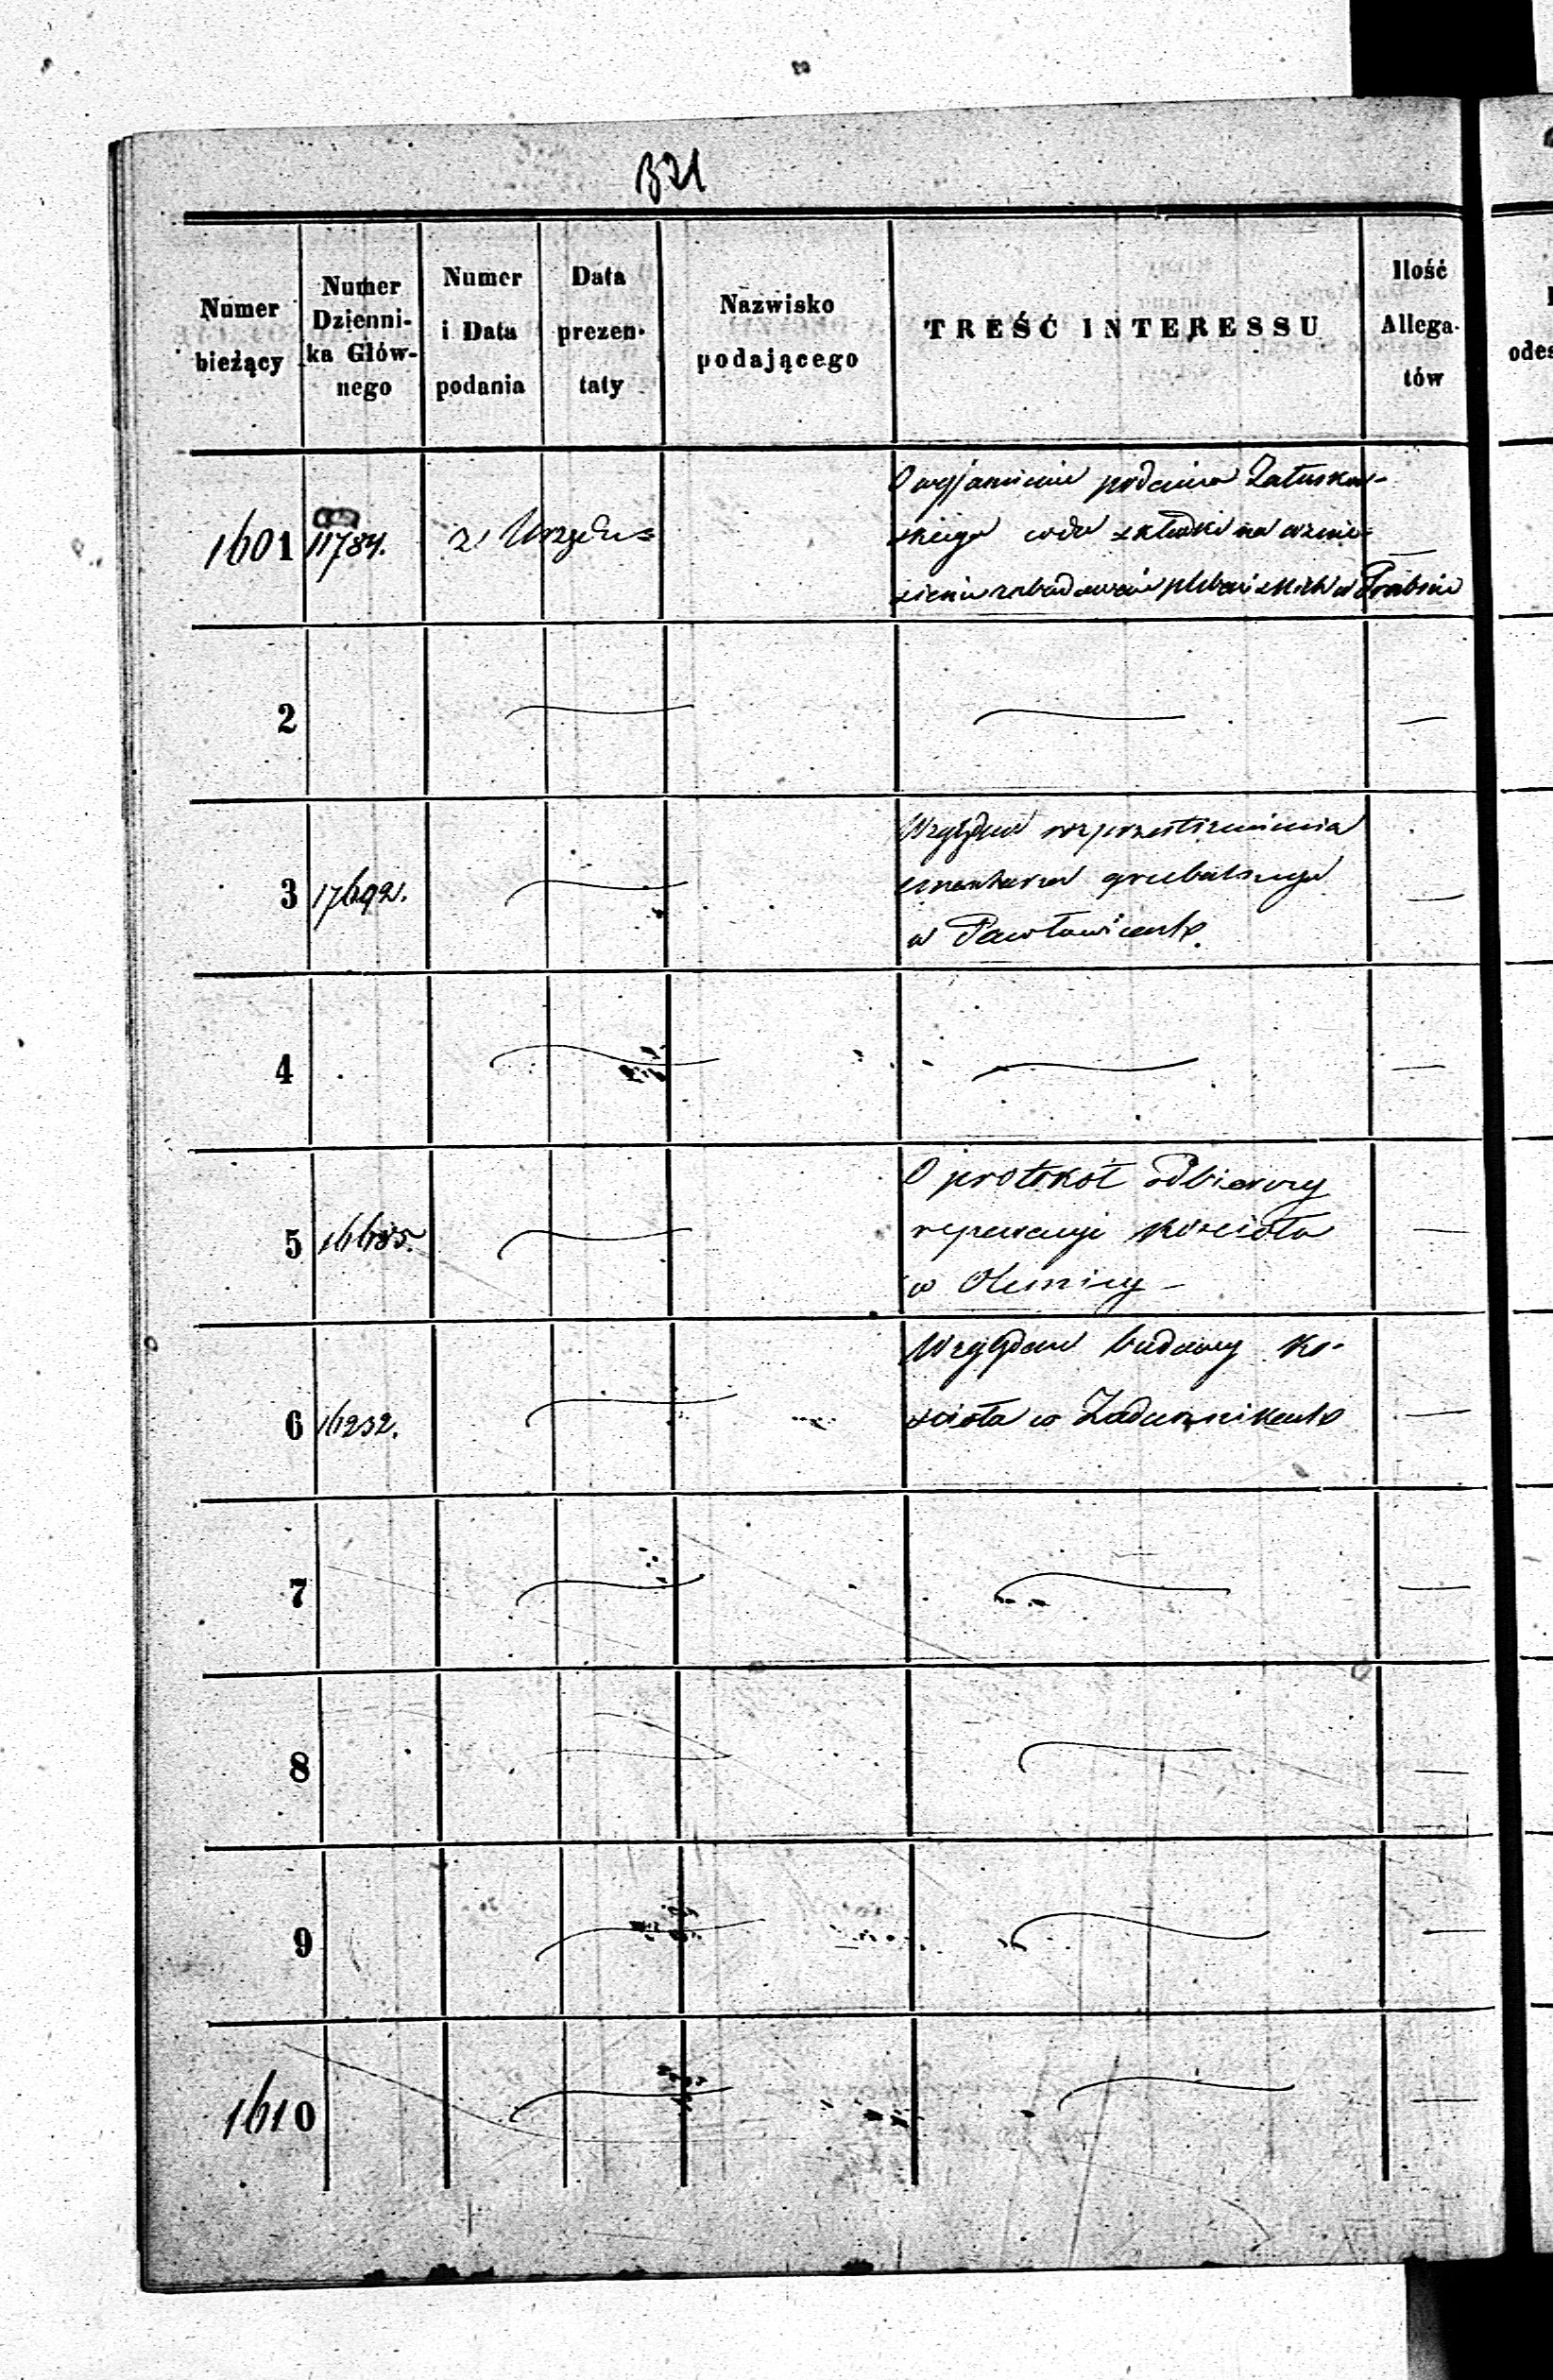 321
Numer bieżący
Numer Dzienni-
ka Głów-
nego
Numer i Data podania
Data prezen-
taty
Nazwisko podającego
TREŚĆ INTERESSU
Ilość Allega-
tów
odes
1601 11784. z Urzędu
O wyjaśnienie podania Załuskow-
skiego wdu składki na wznie-
sienie zabudowań plebańskich w
2
3 17692.
Względem rozprzestrzenienia
cmentarza grzebalnego
w Pawłowicach.
4
5 16685.
O protokół odbiorczy
reparacyi kościoła
w Oleśnicy
6 16232.
Względem budowy ko-
ścioła w Zadusznikach
7
8
9
1610